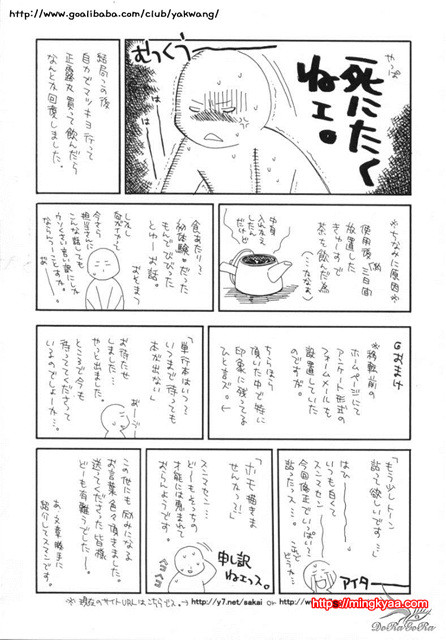 http://www.goalibaba.com/club/yakwang/
やっぱ
死にたく
ねェ。
むっくう
は
は
結局この後
自力でマツキヨ行って
正露丸買って飲んだら
なんとか回復しました。
※ちなみに原因※
使用後、二、三日間
放置した
きゅーすで
茶を飲んだ為
中身
入れかえ
したん
だけど
食あたりって
初体験だった
もんでびびった
とゆーお話。
おそまつ
しかし
気がつけば
今すら
担当さんに
こんな話しても
ウソくさい言い訳にしか
ならんつーことすか。
あー
Gおまけ
※移転前の
ホームページにて
アンケート形式の
フォームメールを
設置していた
のですが、
ちょうほら
頂いた中で特に
印象に残ってる
ひと言ズ。
「単行本はいつ?
いつまで待っても
本が出ない」
お待たせ
しました…
やっと出ました。
ところで今も
待ってて下さって
いるのでしょーか…。
「もう少しトーン
貼って欲しいです…」
はひー
いつも白くて
スンマセン
今回修正でいっぱい
貼ったっス…。
アイター
「ホモ描きま
せんなっ?」
スンマセン…
どーもそっちの
才能には恵まれて
おらんようです。
申し訳
ねェっス。
この他にも励みになる
お言葉色々頂きました。
送ってくださった皆様
どーも有難うでした。
あ、文章勝手に
紹介してスマンです。
※現在のサイトURLはこちらどえ。→http://y7.net/sakai or http://w
http://mingkyaa.com
DoRaGoRa